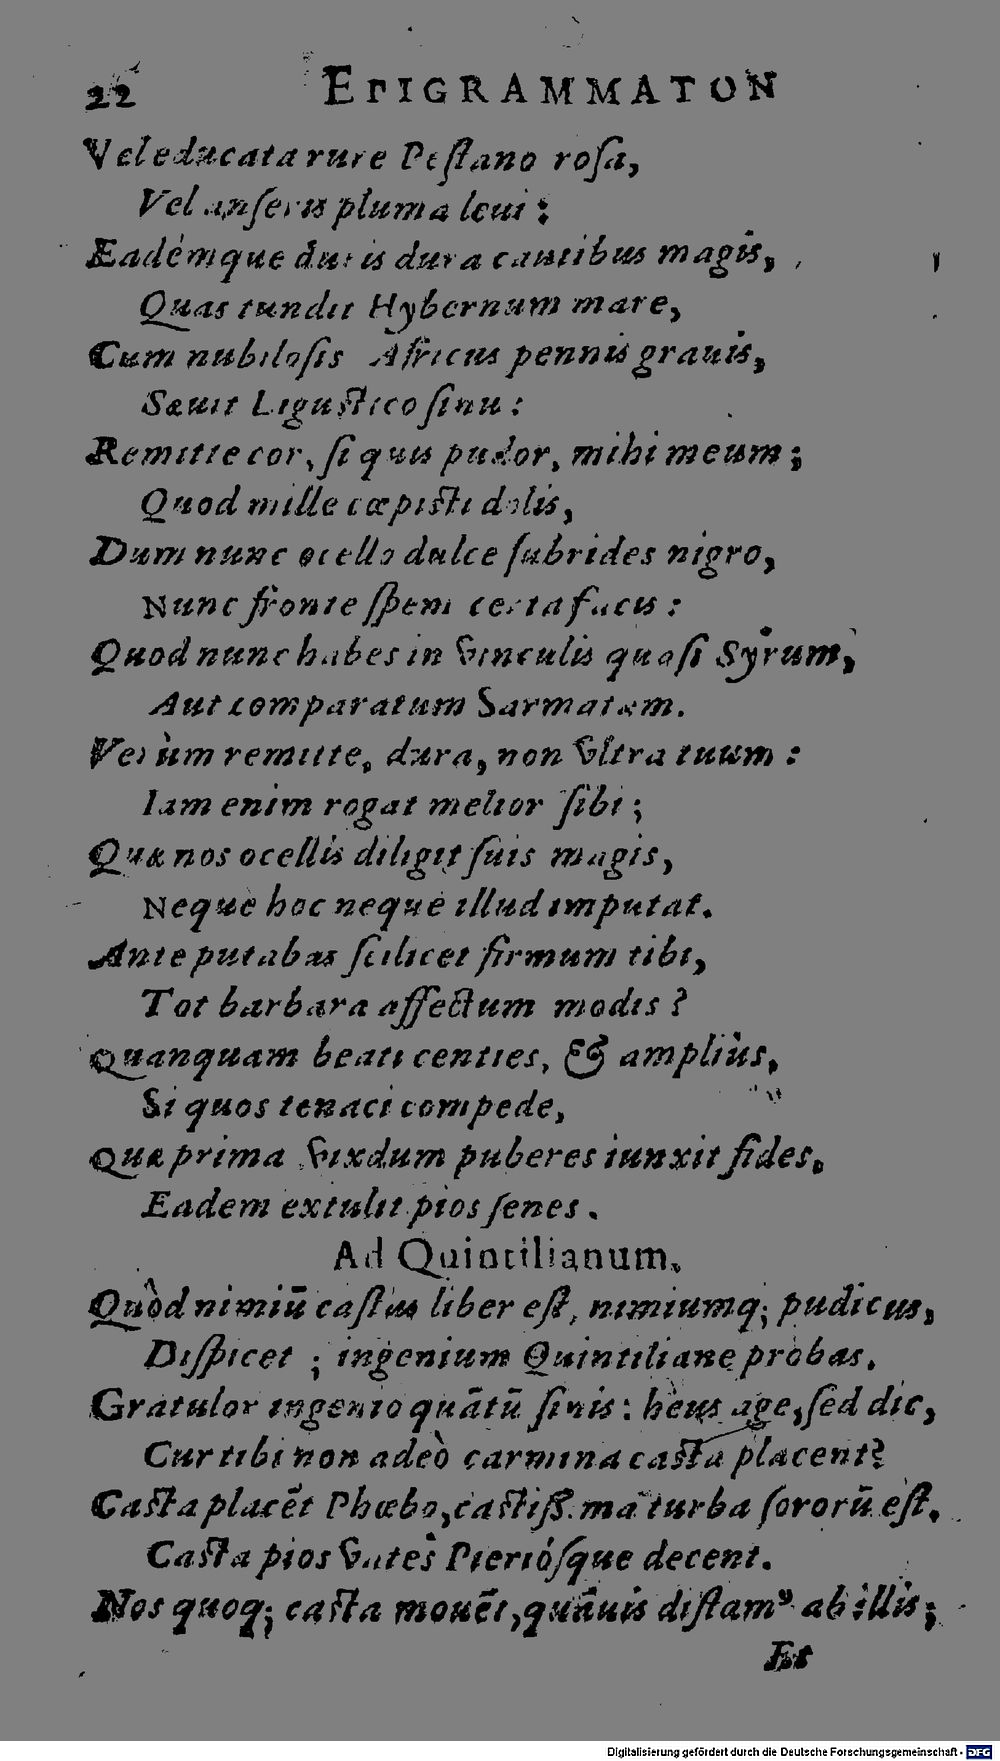 22 EPIGRAMMATON
Vel educata rure Pestano rosa,
Vel anseris pluma leui:
Eadémque duris dura cautibus magis,
Quas tundit Hybernum mare,
Cum nubilosis Africus pennis grauis,
Sæuit Ligustico sinu:
Remitte cor, si quis pudor, mihi meum;
Quod mille cœpisti dolis,
Dum nunc ocello dulce subrides nigro,
Nunc fronte spem certa facis:
Quod nunc habes in vinculis quasi Syrum,
Aut comparatum Sarmatam.
Verùm remitte, dura, non vltra tuum:
Iam enim rogat melior sibi;
Quæ nos ocellis diligit suis magis,
Neque hoc neque illud imputat.
Ante putabas scilicet firmum tibi,
Tot barbara affectum modis?
Quanquam beati centies, & ampliùs,
Si quos tenaci compede,
Quæ prima vixdum puberes iunxit fides,
Eadem extulit pios senes.
Ad Quintilianum.
Quòd nimiū castus liber est, nimiumq; pudicus,
Dispicet; ingenium Quintiliane probas.
Gratulor ingenio quātū sinis: heus age, sed dic,
Cur tibi non adeò carmina casta placent?
Casta placēt Phœbo, castiss. ma turba sororū est,
Casta pios vates Pieriósque decent.
Nos quoq; casta mouēt, quāuis distamꝰ ab illis;
Et
Digitalisierung gefördert durch die Deutsche Forschungsgemeinschaft - DFG